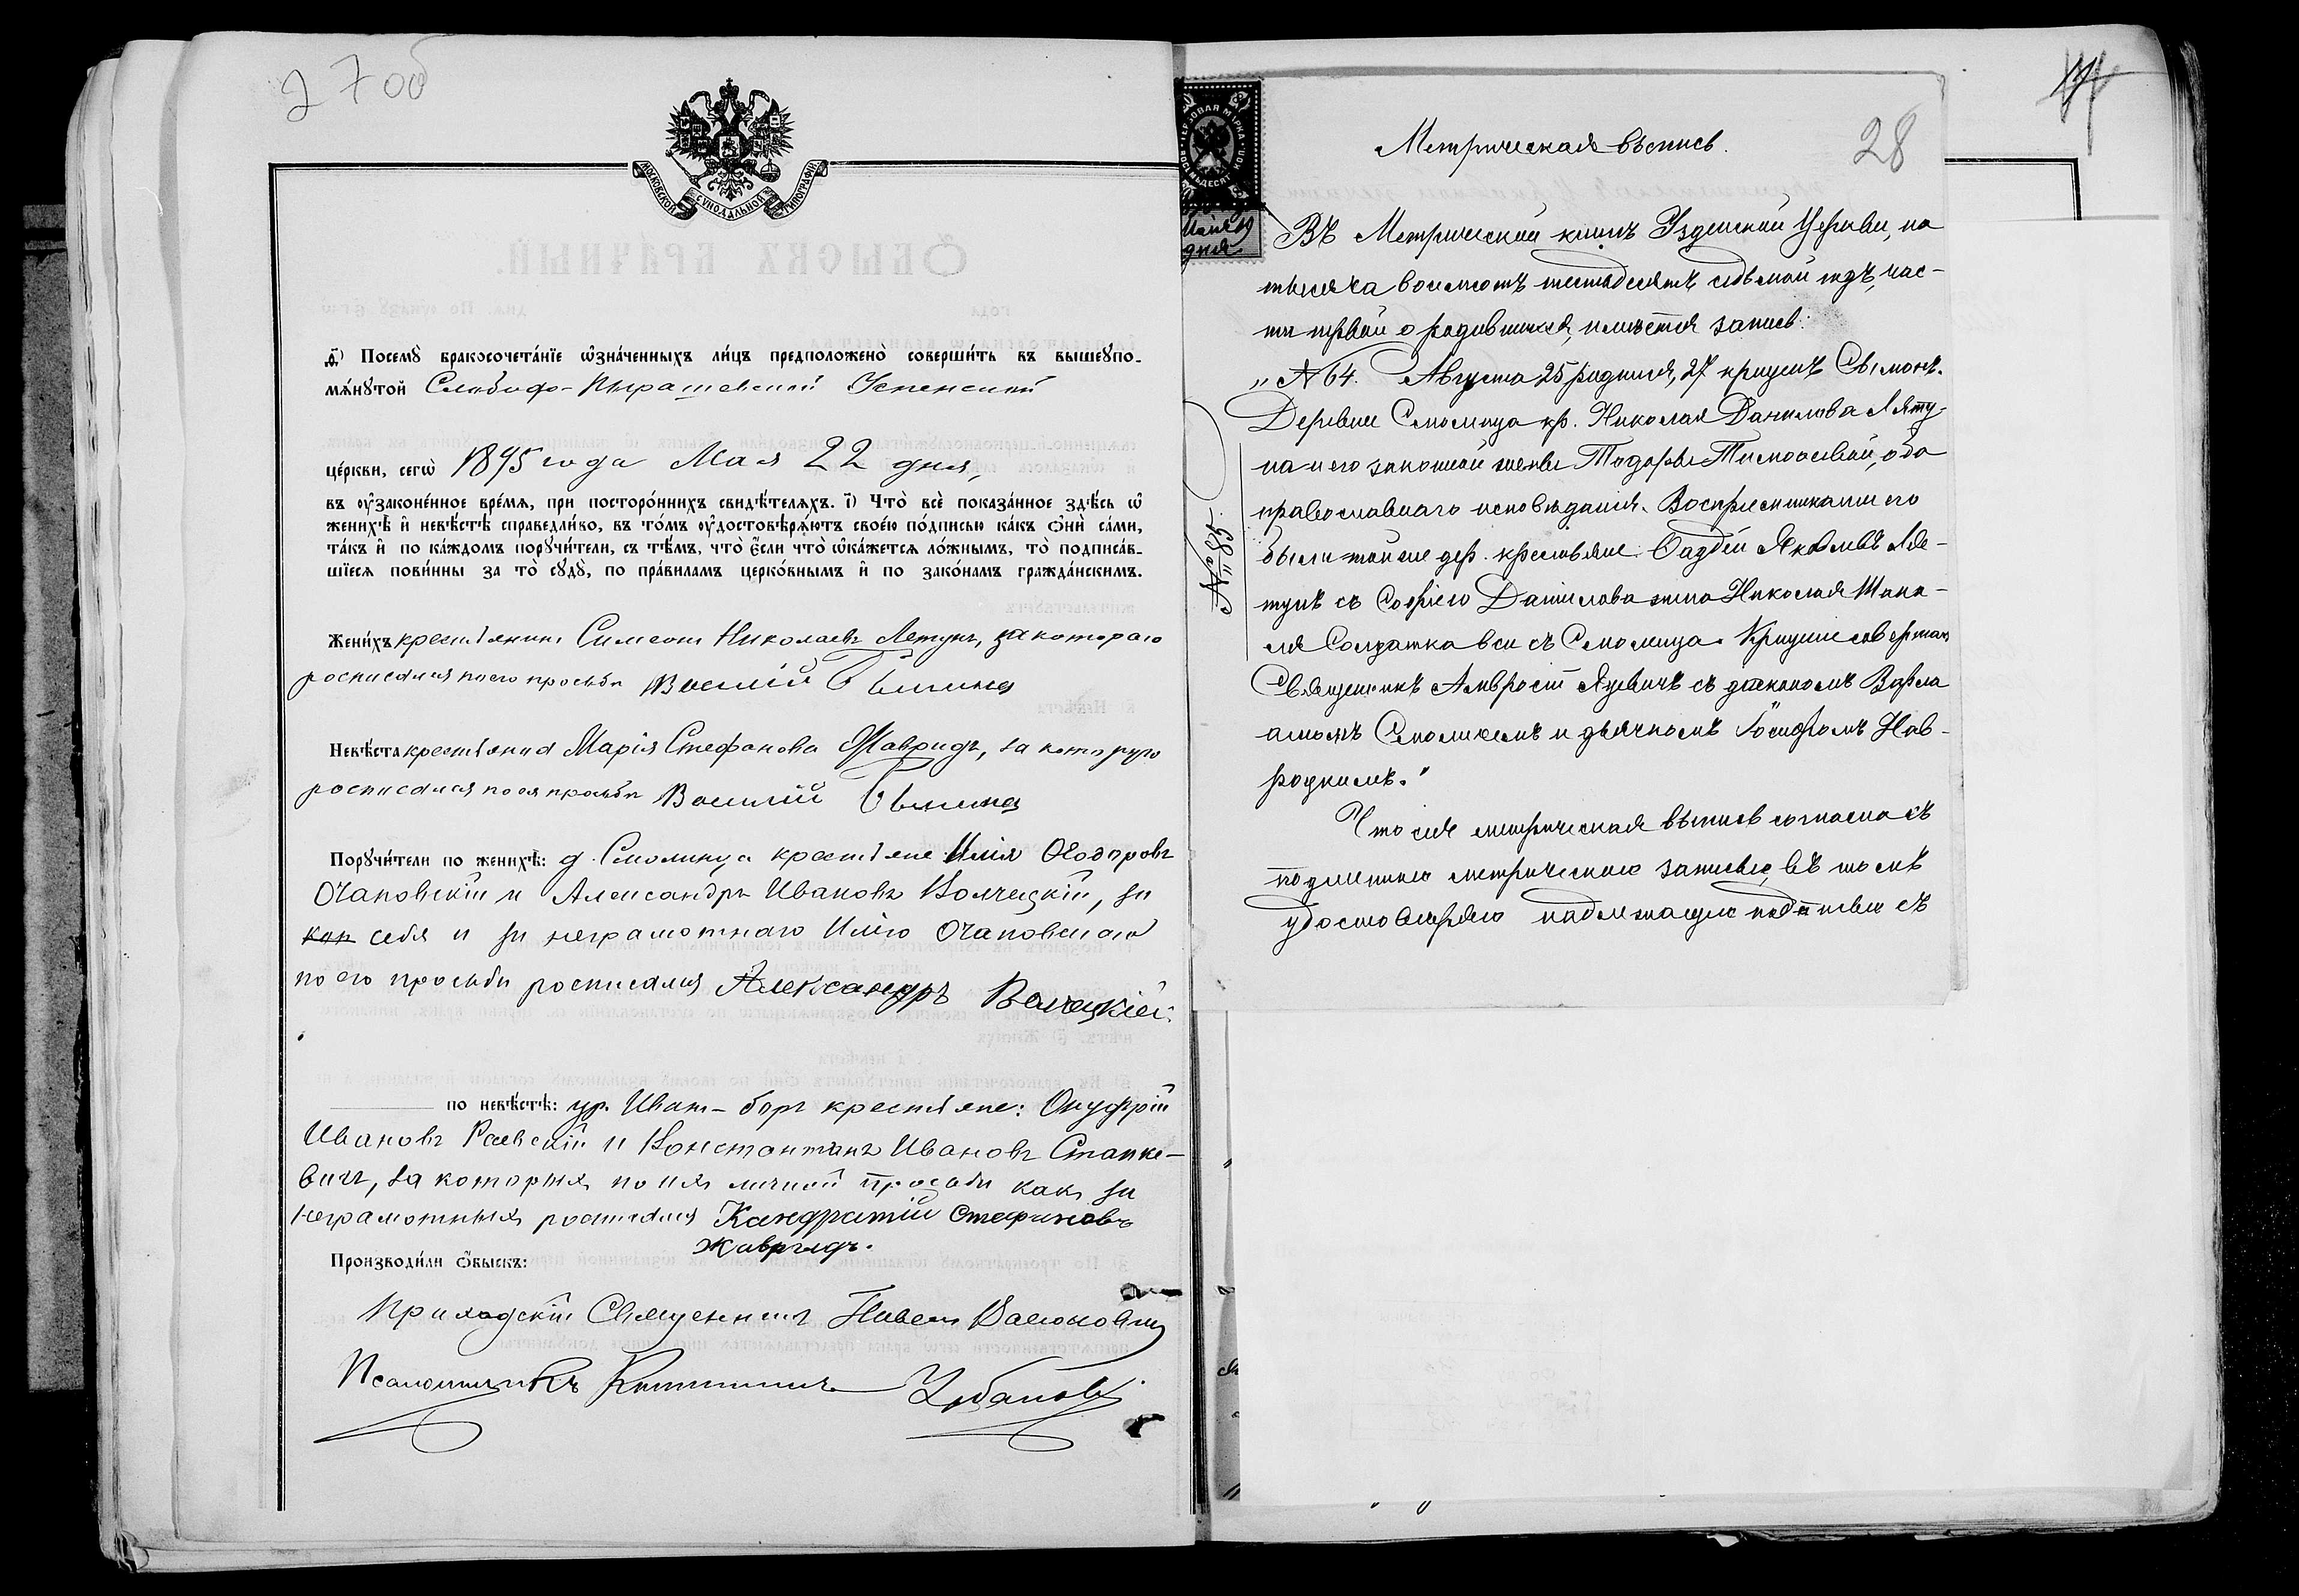 27об
МОСКОВСКОЙ СѴНОДАЛЬНОЙ ТИПОГРАФІИ
Посемꙋ̀ бракосочета́нїе ѡ҆зна́ченныхъ ли́цъ предположено̀ соверши́ть въ вышеꙋпо-
мѧ́нꙋтой Слободо-Пырашевской Успенской
це́ркви, сегѡ̀ 1895 года Мая 22 дня,
въ ᲂу҆зако́ненное вре́мѧ, при посторо́ннихъ свидѣ́телѧхъ. і҃) Что̀ всѐ пока́занное здѣ́сь ѡ҆
женихѣ̀ и҆ невѣ́стѣ справедли́во, въ то́мъ ᲂу҆достовѣрѧ́ютъ свое́ю по́дписью ка́къ ѻ҆нѝ са́ми,
та́къ и҆ по ка́ждомъ порꙋчи́тели, съ тѣ́мъ, что̀ є҆́сли что̀ ѡ҆ка́жетсѧ ло́жнымъ, то̀ подписа́в-
шїесѧ пови́нны за то̀ сꙋдꙋ̀, по пра́виламъ церко́внымъ и҆ по зако́намъ гражда́нскимъ.
Жени́хъ крестьянинъ Симеонъ Николаевъ Летунъ, за котораго
росписался по его просьбѣ Василій
Невѣ́ста крестьянка Марія Стефанова Жавридъ, за которую
росписался по ея просьбѣ Василій
Порꙋчи́тели по женихѣ̀: д. Смолинца крестьяне Илія Ѳеодоровъ
Очаповскій и Александръ Ивановъ Волчецкій, за
себя и за неграмотнаго Илію Очаповскаго
по его просьбѣ росписался Александръ Волчецкій.
по невѣ́стѣ: ур. Иванъ-боръ крестьяне: Онуфрій
Ивановъ Раевскій и Константинъ Ивановъ Станке-
вичъ, за которыхъ по ихъ личной просьбѣ какъ за
неграмотныхъ росписался Кандратій Стефановъ
Жавридъ.
Производи́ли ѻ҆́быскъ:
Приходскій Священникъ Павелъ
Псаломщикъ Урбановичъ
28
ГЕРБОВАЯ МАРКА ВОСЕМЬДЕСЯТ КОП.
Мая 19
дня
№ 85
Метрическая выпись.
Въ Метрической книгѣ Узденской Церкви, на
тысяча восемьсотъ шестьдесятъ седьмой годъ, час-
ти первой о родившихся, имѣется запись:
„№ 64. Августа 25 родился, 27 крещенъ Сымонъ.
Деревни Смолинца кр. Николая Данилова Ляту-
на и его законной жены Тодоры Тимоѳеевой, оба
православнаго исповѣданія. Воспріемниками его
были той же дер. крестьяне: Фаддей Яковлевъ Ля-
тунъ съ Софіею Данилова жена Николая
Солдатка вси съ Смолинца. Крещеніе совершалъ
Священникъ Амвросій Яцевичъ съ дьякономъ Варла-
амомъ Смоличемъ и дьячкомъ Іосифомъ Нав-
роцкимъ."
Что сія метрическая выпись согласна съ
подлинною метрическою записью, въ томъ
удостовѣряю надлежащею подписью съ